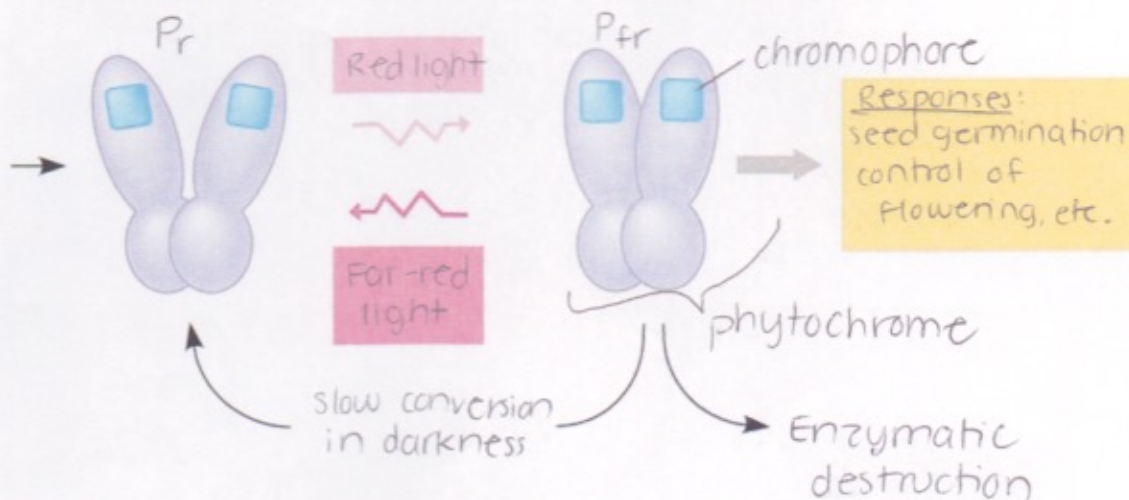 Pr
Red light
Far-red
light
Pfr
chromophore
Responses:
seed germination
control of
flowering, etc.
phytochrome
slow conversion
in darkness
Enzymatic
destruction